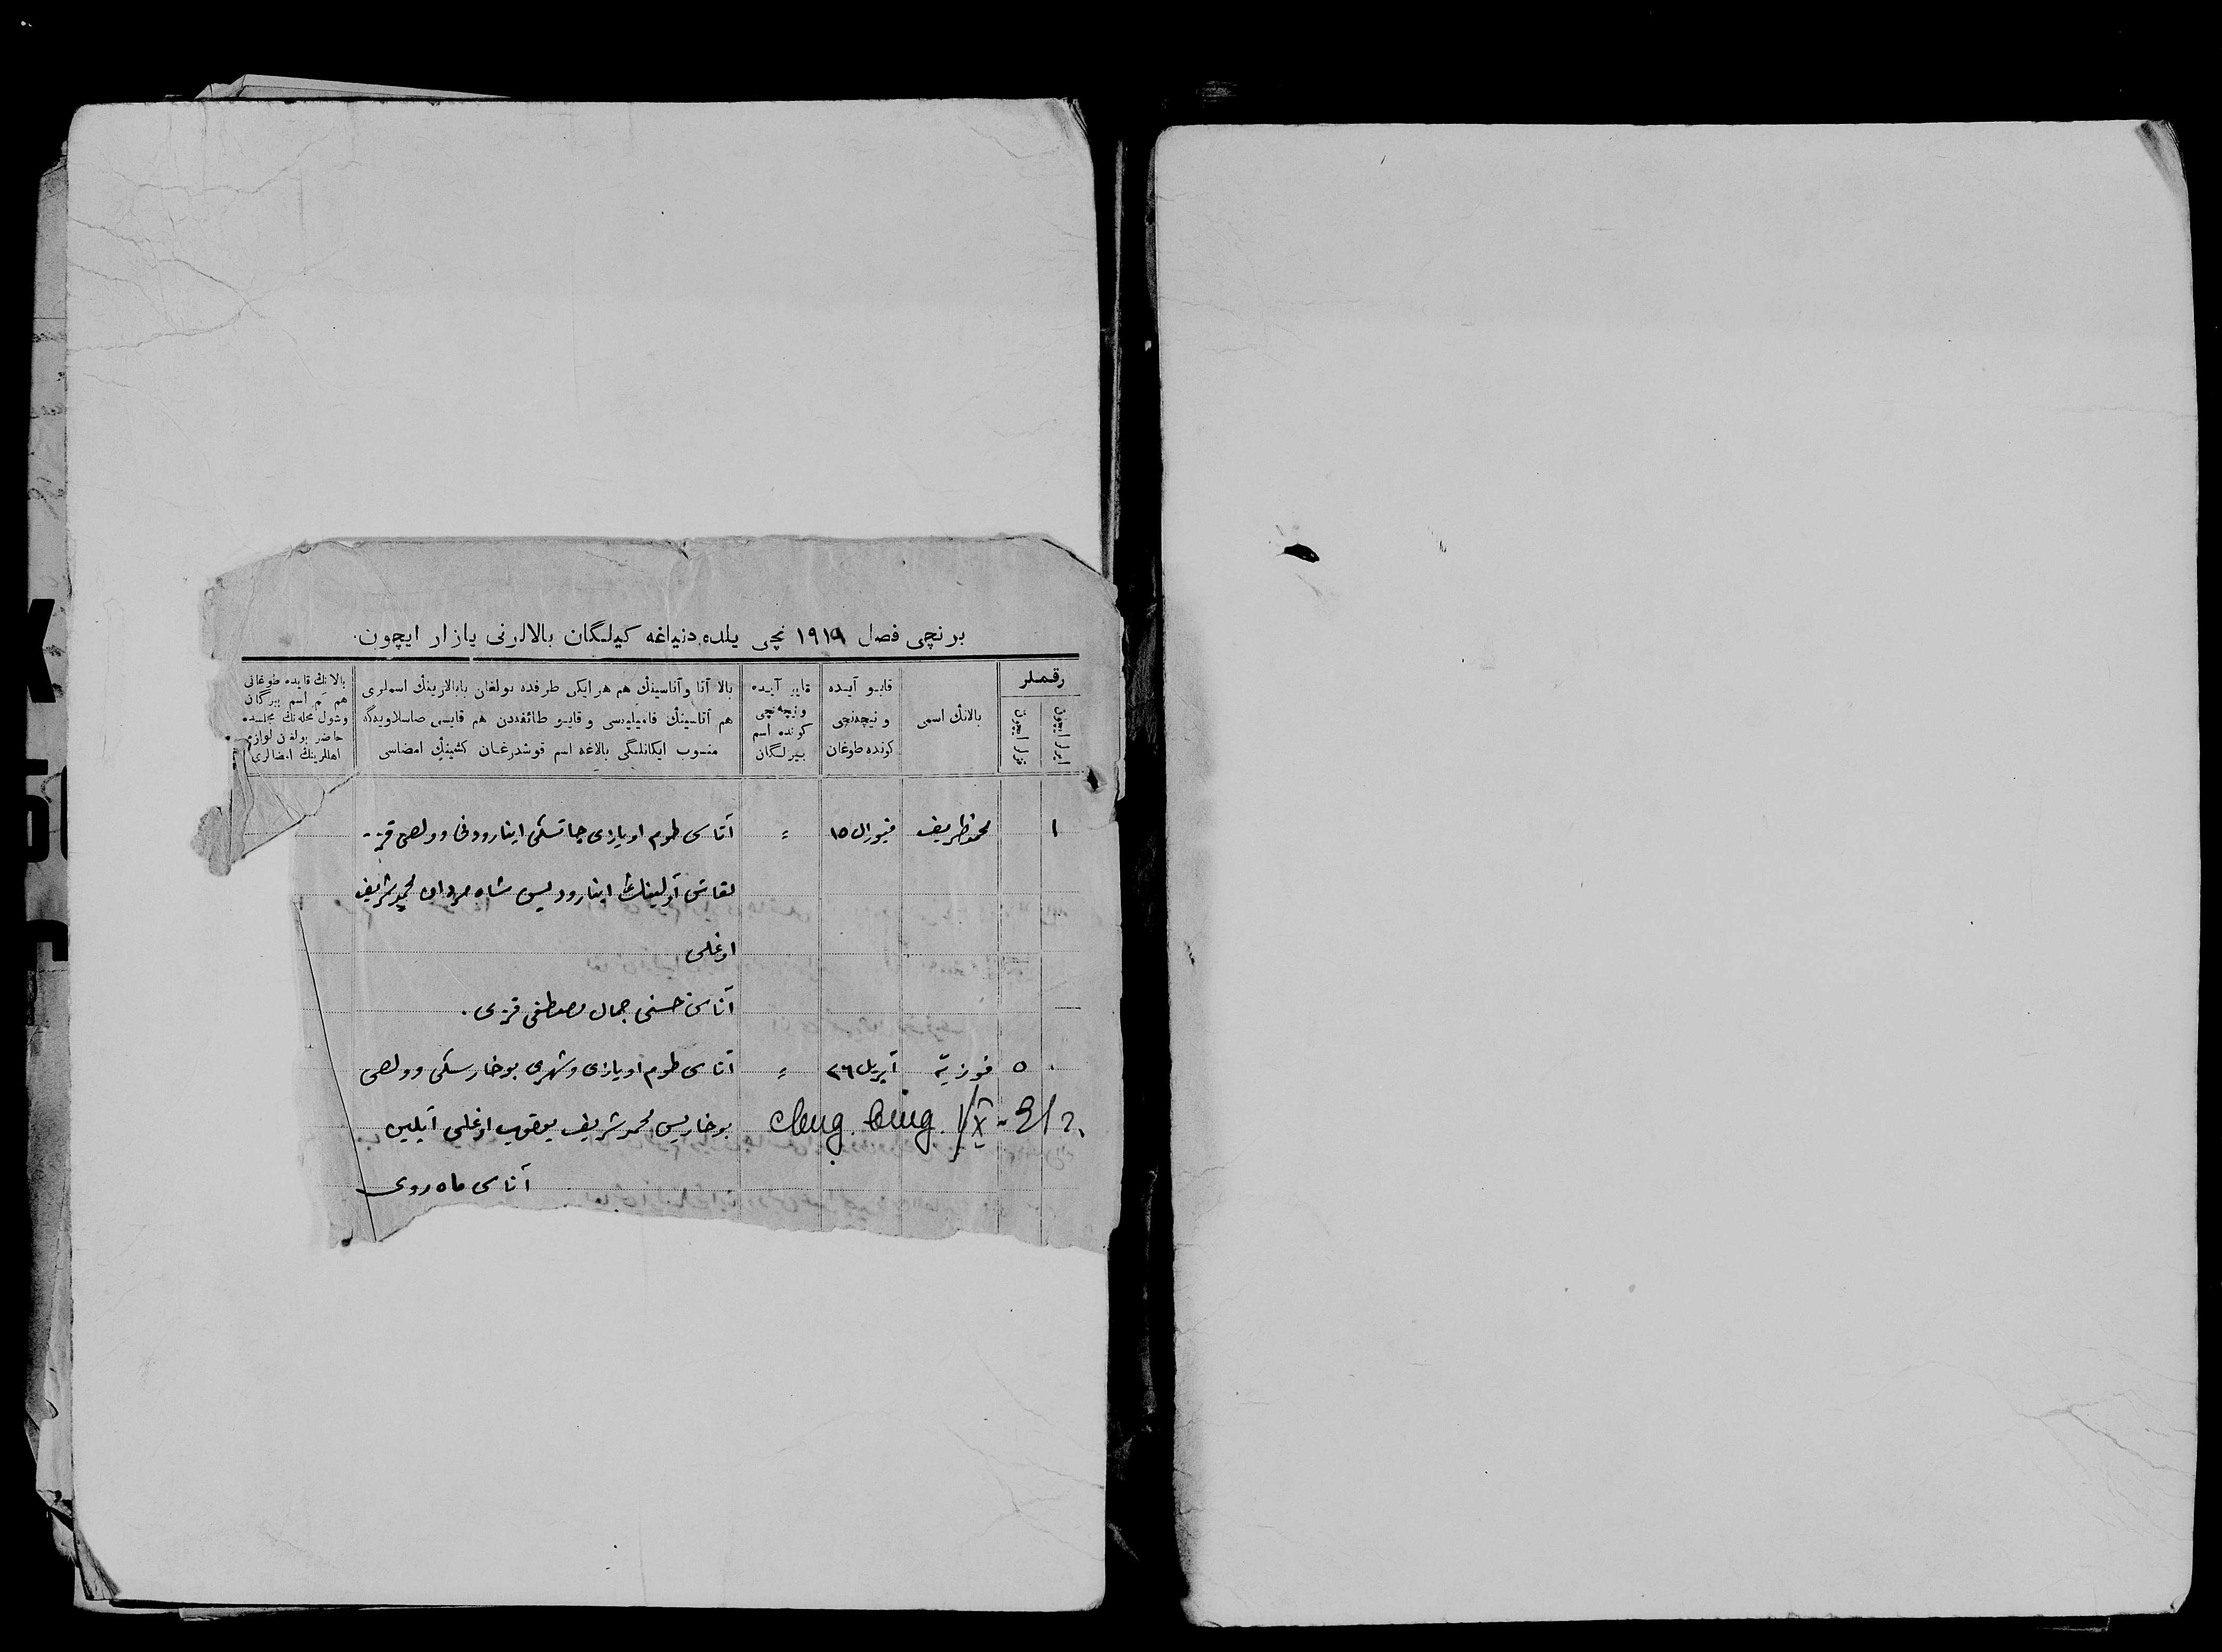 برنچی فصل ١٩١٩ نچی یلده دنیاغه کیلگان بالالرنی یازار ایچون.
رقملر
ایرلر ایچون
قزلر ایچون
بالانڭ اسمی
قایو آیده
و نیچەنچی
کونده طوغان
قایو آیده
و نیچەنچی
کونده اسم
بیرلگان
بالا آتا وآناسینڭ هم هر ایکی طرفده بولغان بابالارینڭ اسملری
هم آتاسینڭ فامیلیەسی و قایو طائفەدن هم قایسی صاسلاویەگە
منسوب ایکانلیگی بالاغه اسم قوشدرغان کشینڭ امضاسی
بالانڭ قایده طوغانی
هم اسم بیرگان
وشول محلەنڭ مجلسده
حاضر بولغان لوازم
اهللرینڭ امضالری
١ محمدظریف فیورال ١٥ = آتاسی طوم اویازی چاتسکی اینارودنی وولصی قز-
لقاش آولینڭ اینارودیس شاه مردان محمدشریف
اوغلی
آناسی حسنی جمال مصطفی قزی.
٥ فوزیّه آپریل ٢٦ = آتاسی طوم اویازی وشهری بوخارسکی وولصی
بوخاریس محمدشریف یعقوب اوغلی آیلین
آناسی ماه روی